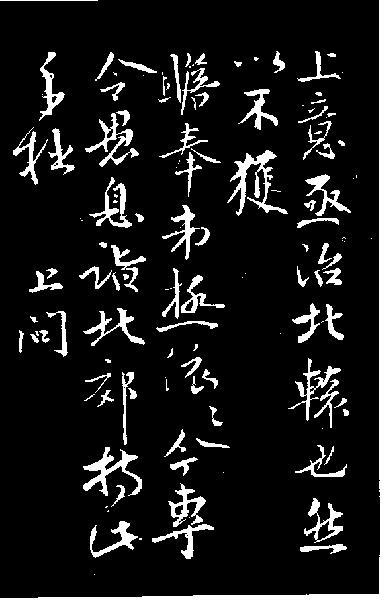 上意亟治北轅也然
以不獲
瞻奉弟極依々今專
令愚息詣北郊持此
手 上問